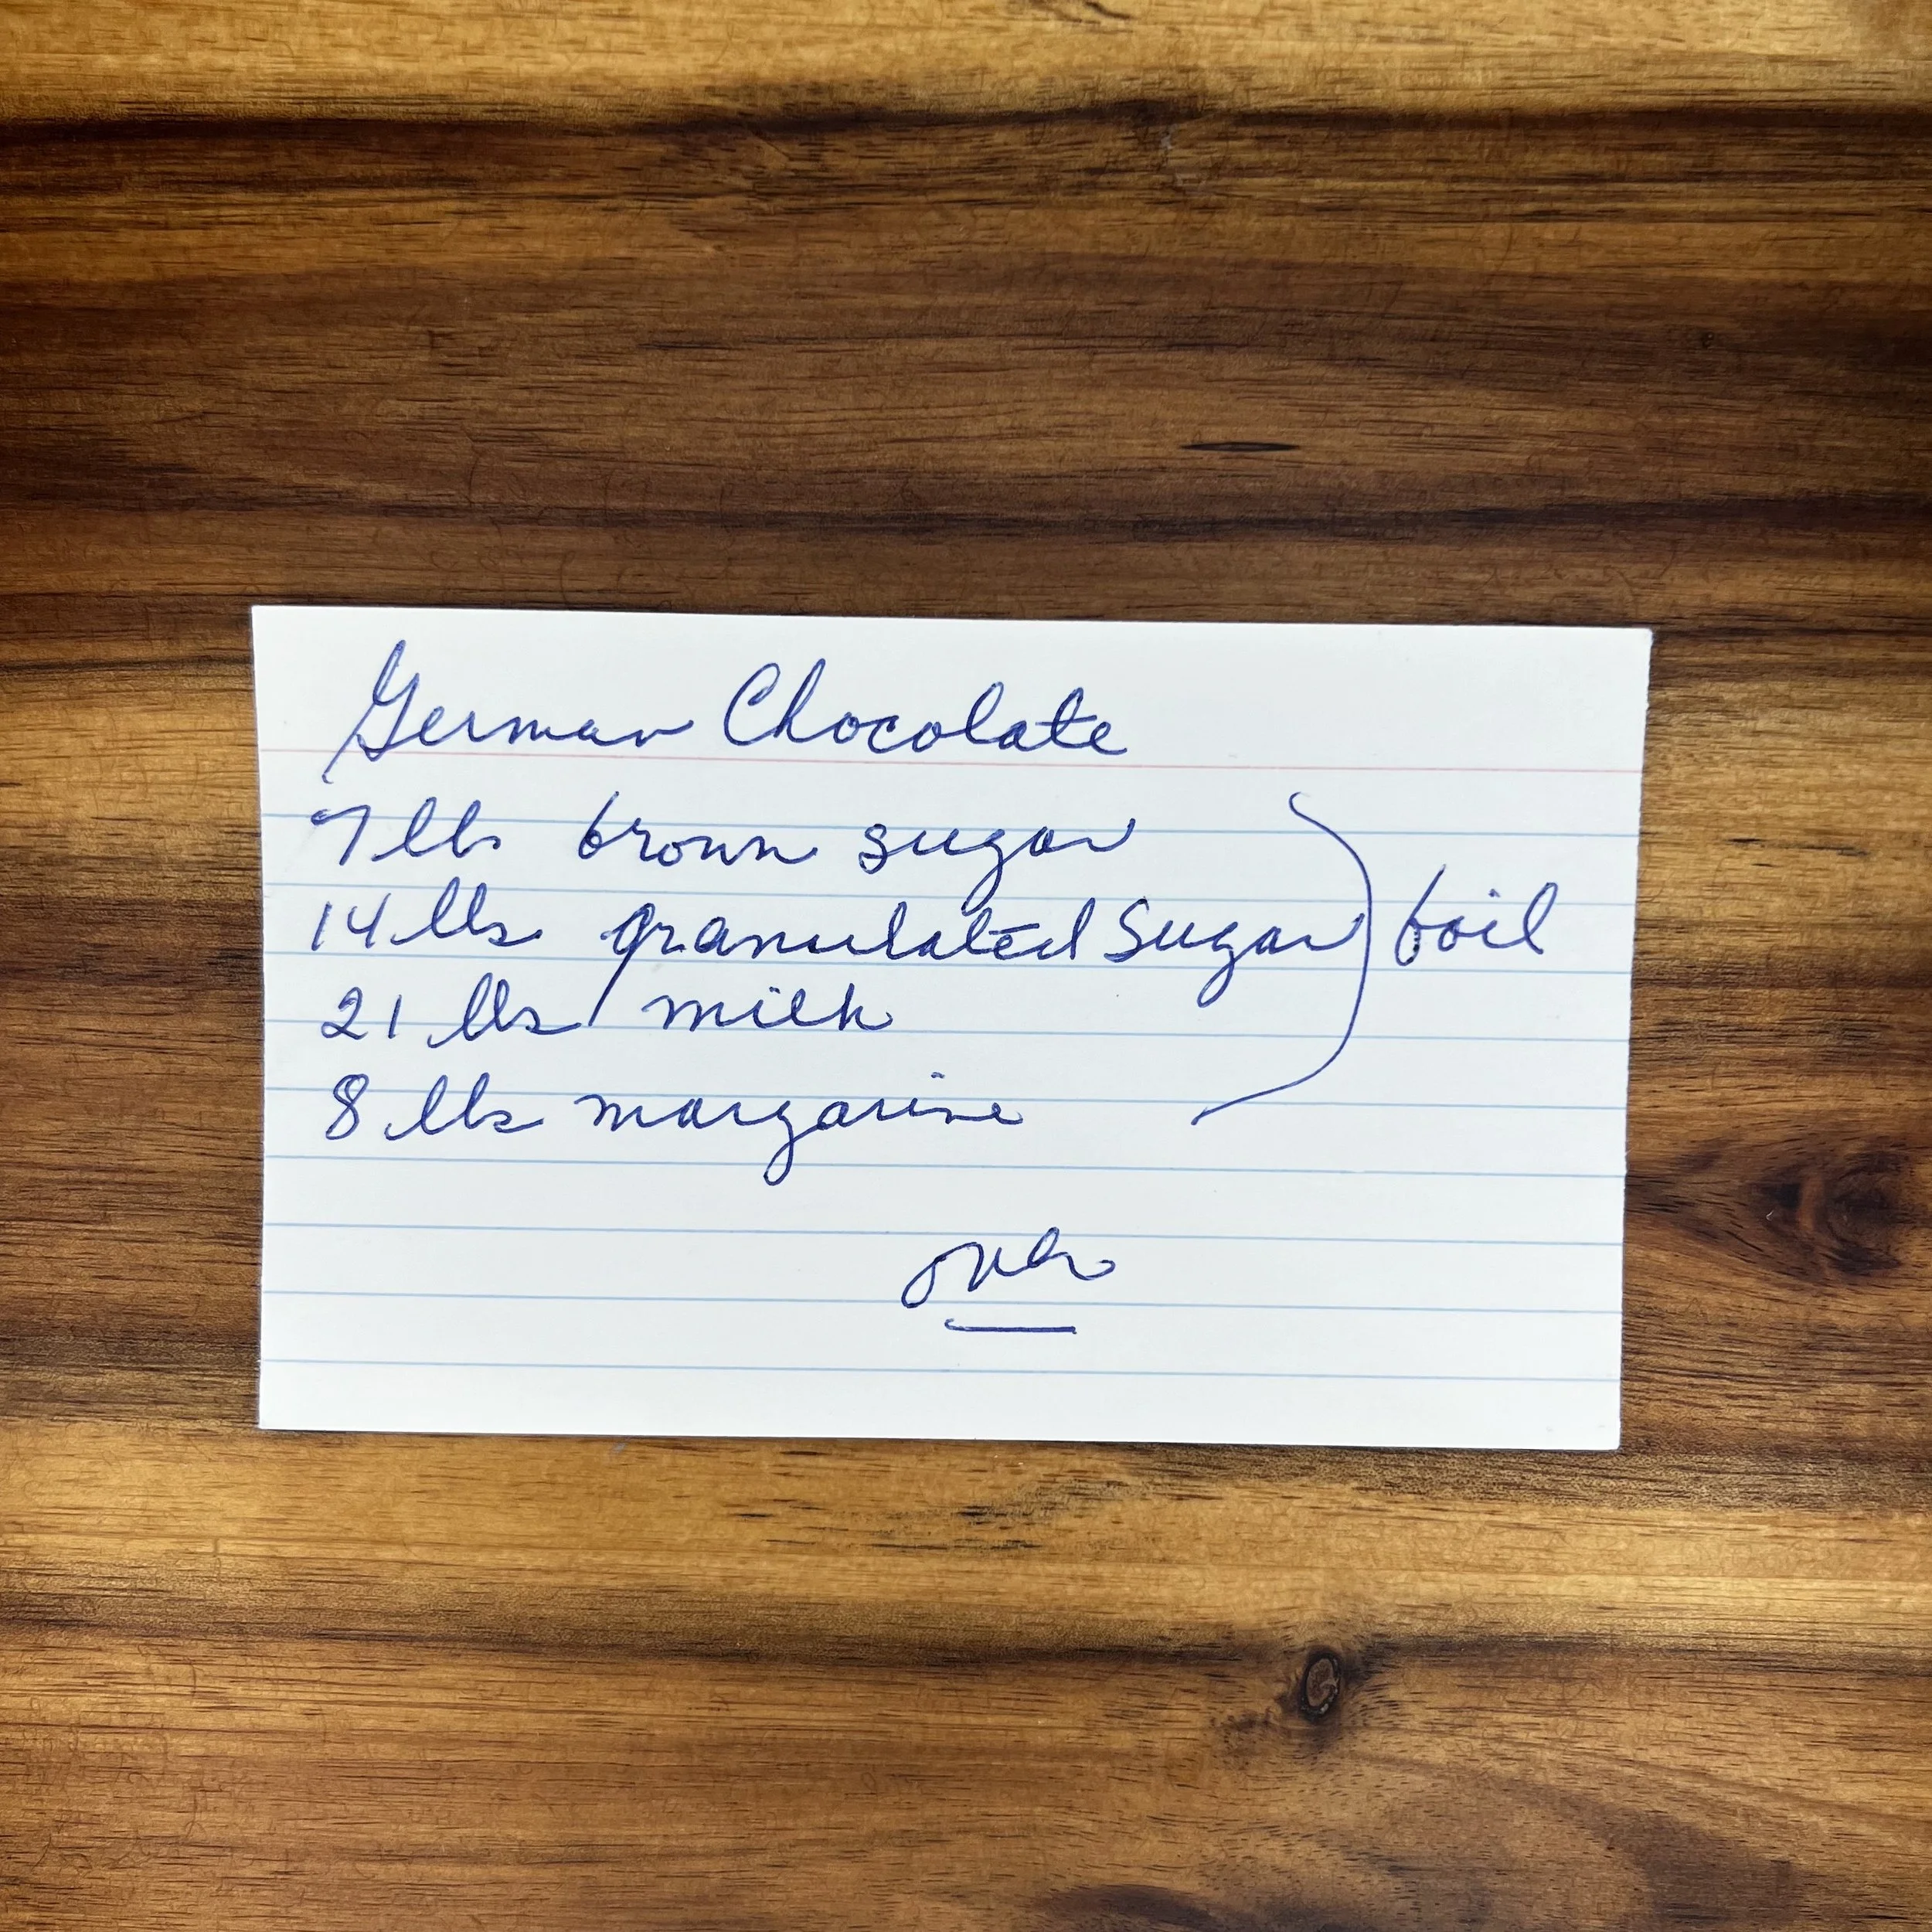 German Chocolate
7 lbs brown sugar
14 lbs granulated Sugar boil
21 lbs milk
8 lbs margarine
over